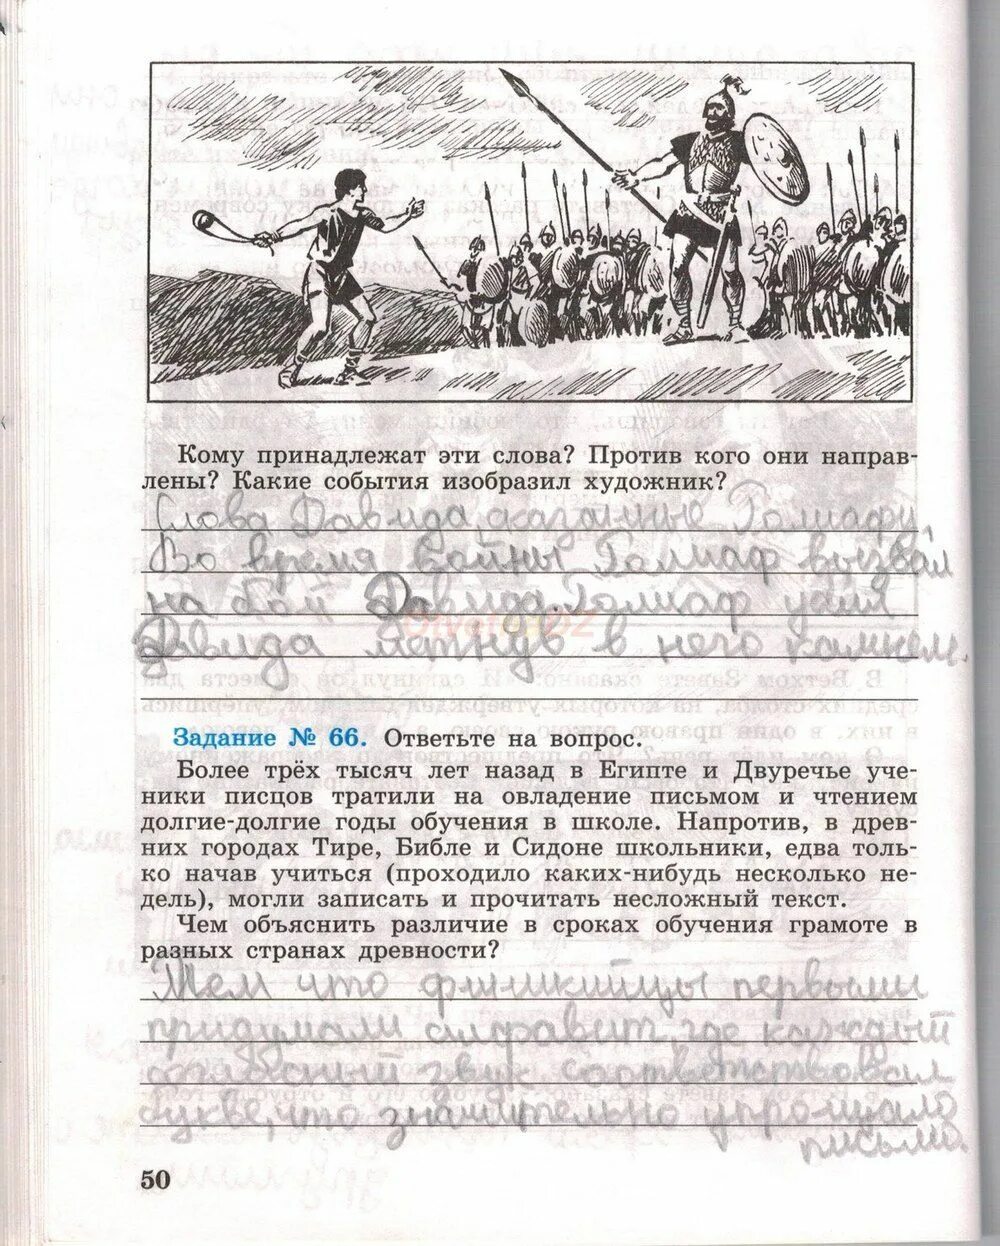 Кому принадлежат эти слова? Против кого они направ-
лены? Какие события изобразил художник?
Слова Давида, сказанные Голиафу.
Во время войны Голиаф вызвал
на бой Давида. Голиаф убил
Давида метнув в него камнем.
Задание № 66. Ответьте на вопрос.
Более трёх тысяч лет назад в Египте и Двуречье уче-
ники писцов тратили на овладение письмом и чтением
долгие-долгие годы обучения в школе. Напротив, в древ-
них городах Тире, Библе и Сидоне школьники, едва толь-
ко начав учиться (проходило каких-нибудь несколько не-
дель), могли записать и прочитать несложный текст.
Чем объяснить различие в сроках обучения грамоте в
разных странах древности?
Тем что финикийцы первыми
придумали алфавит, где каждый
согласный звук соответствовал
букве, что значительно упрощало
письмо.
50